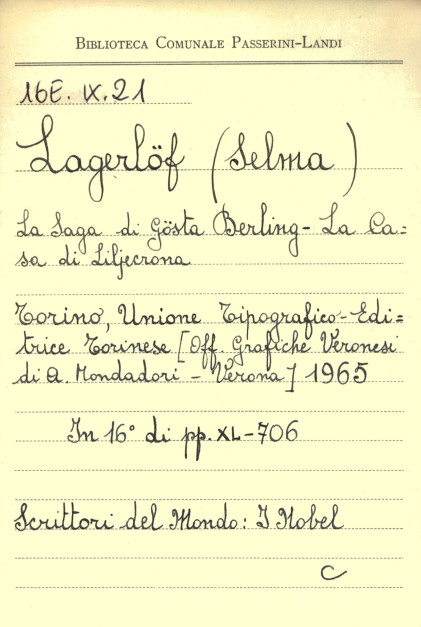 BIBLIOTECA COMUNALE PASSERINI-LANDI
16E. IX.21
Lagerlöf (Selma)
La Saga di Gösta Berling - La Ca=
sa di Liljecrona
Torino, Unione Tipografico-Edi=
trice Torinese [Off. Grafiche Veronesi
di A. Mondadori - Verona] 1965
In 16° di pp. XL-706
Scrittori del Mondo: I Nobel
C